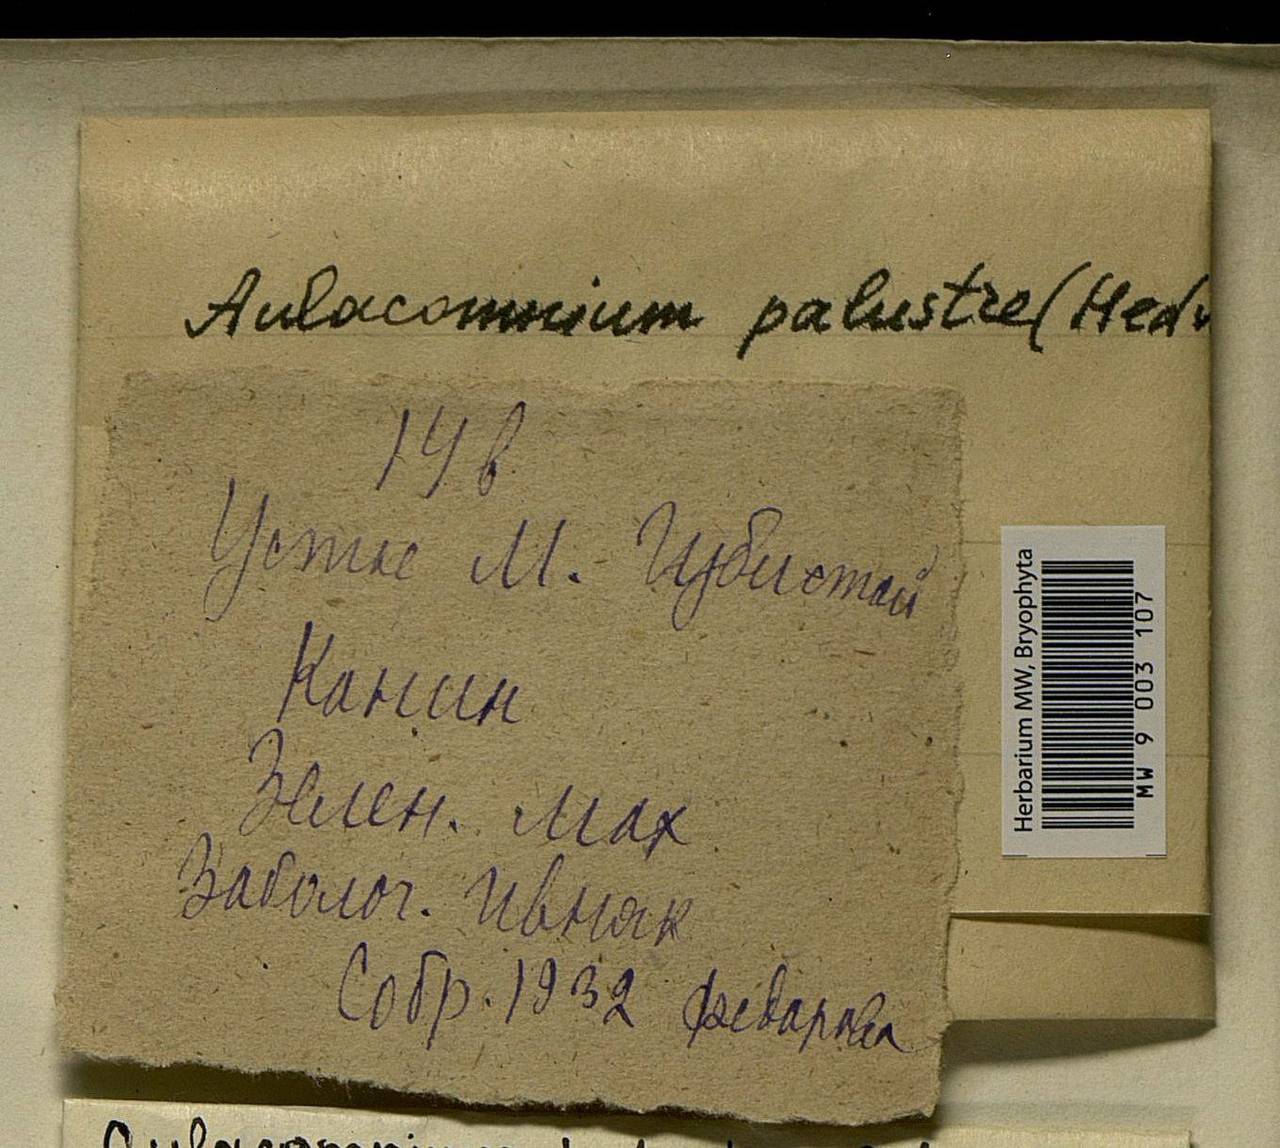 Aulacomnium palustre (Hedw
14 в
Устье М. Губистой
Канин
Зелен. мох
Заболоч. ивняк
Собр. 1932 Федарова
Herbarium MW, Bryophyta
MW 9 003 107